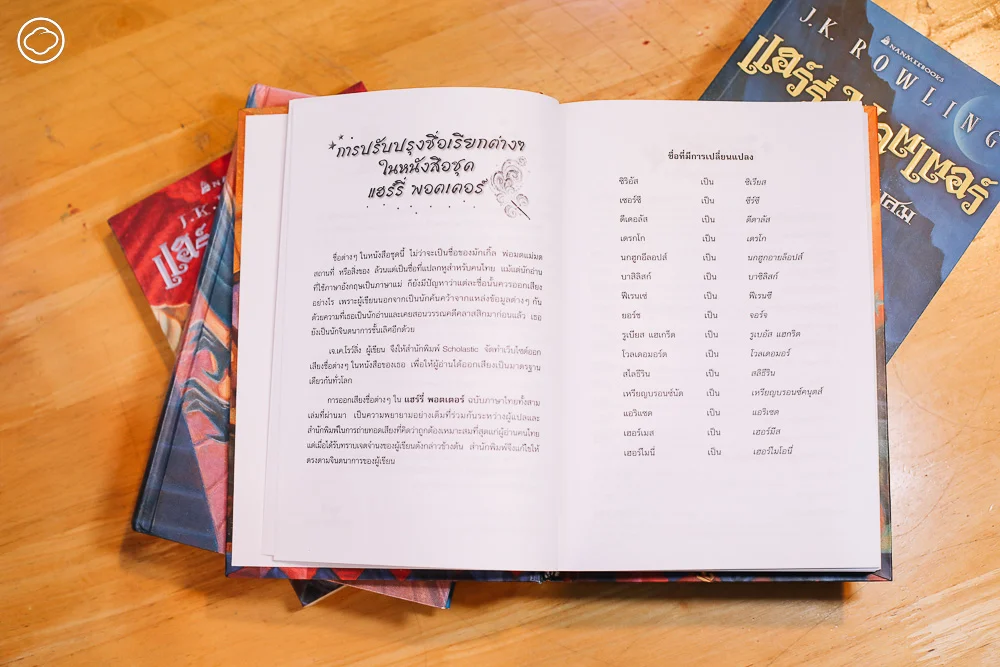 การปรับปรุงชื่อเรียกต่างๆ
ในหนังสือชุด
แฮร์รี่ พอตเตอร์
ชื่อต่างๆ ในหนังสือชุดนี้ ไม่ว่าจะเป็นชื่อของมักเกิ้ล พ่อมดแม่มด
สถานที่ หรือสิ่งของ ล้วนแต่เป็นชื่อที่แปลกหูสำหรับคนไทย แม้แต่นักอ่าน
ที่ใช้ภาษาอังกฤษเป็นภาษาแม่ ก็ยังมีปัญหาว่าแต่ละชื่อนั้นควรออกเสียง
อย่างไร เพราะผู้เขียนนอกจากเป็นนักค้นคว้าจากแหล่งข้อมูลต่างๆ กัน
ด้วยความที่เธอเป็นนักอ่านและเคยสอนวรรณคดีคลาสสิกมาก่อนแล้ว เธอ
ยังเป็นนักจินตนาการชั้นเลิศอีกด้วย
เจ.เค.โรว์ลิ่ง ผู้เขียน จึงให้สำนักพิมพ์ Scholastic จัดทำเว็บไซต์ออก
เสียงชื่อต่างๆ ในหนังสือของเธอ เพื่อให้ผู้อ่านได้ออกเสียงเป็นมาตรฐาน
เดียวกันทั่วโลก
การออกเสียงชื่อต่างๆ ใน แฮร์รี่ พอตเตอร์ ฉบับภาษาไทยทั้งสาม
เล่มที่ผ่านมา เป็นความพยายามอย่างเต็มที่ร่วมกันระหว่างผู้แปลและ
สำนักพิมพ์ในการถ่ายทอดเสียงที่คิดว่าถูกต้องเหมาะสมที่สุดแก่ผู้อ่านคนไทย
แต่เมื่อได้รับทราบเจตจำนงของผู้เขียนดังกล่าวข้างต้น สำนักพิมพ์จึงแก้ไขให้
ตรงตามจินตนาการของผู้เขียน
ชื่อที่มีการเปลี่ยนแปลง
ซิริอัส เป็น ซิเรียส
เซอร์ซี เป็น ซีร์ซี
ดีเดอลัส เป็น ดีดาลัส
เดรกโก เป็น เดรโก
นกฮูกอีลอปส์ เป็น นกฮูกอายล็อปส์
บาสิลิสก์ เป็น บาซิลิสก์
ฟีเรนเซ่ เป็น ฟีเรนซี
ยอร์ช เป็น จอร์จ
รูเบียส แฮเกร็ด เป็น รูเบอัส แฮกริด
โวลเดอมอร์ต เป็น โวลเดอมอร์
สไลธีริน เป็น สลิธีริน
เหรียญบรอนซ์นัต เป็น เหรียญบรอนซ์คนุตส์
แอริแซด เป็น แอริเซด
เฮอร์เมส เป็น เฮอร์มีส
เฮอร์ไมนี่ เป็น เฮอร์ไมโอนี่
J.K. ROWLING
NANMEEBOOKS
แฮร์รี่
J.K.
แฮร์